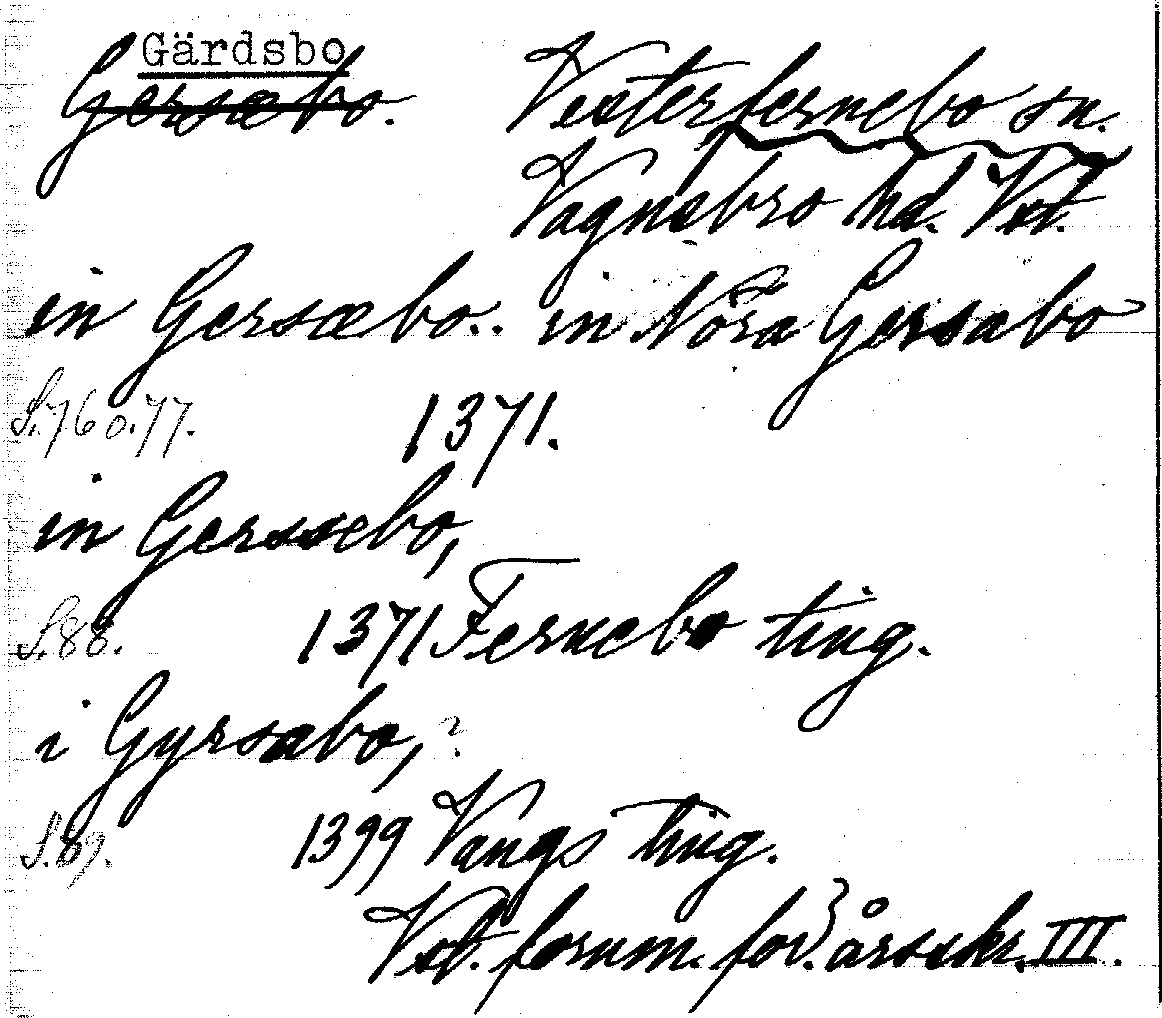 Gärdsbo
Gersæbo. Vesterfernebo sn.
Vagnsbro hd. Vstl.
in Gersæbo.. in Nöra Gersabo
S.76 o. 77. 1371.
in Gerssæbo,
S.88. 1371 Fernebo ting.
i Gyrsabo, ?
S.89. 1399 Vangs ting.
Vstl. fornm. för:s årsskr. III.